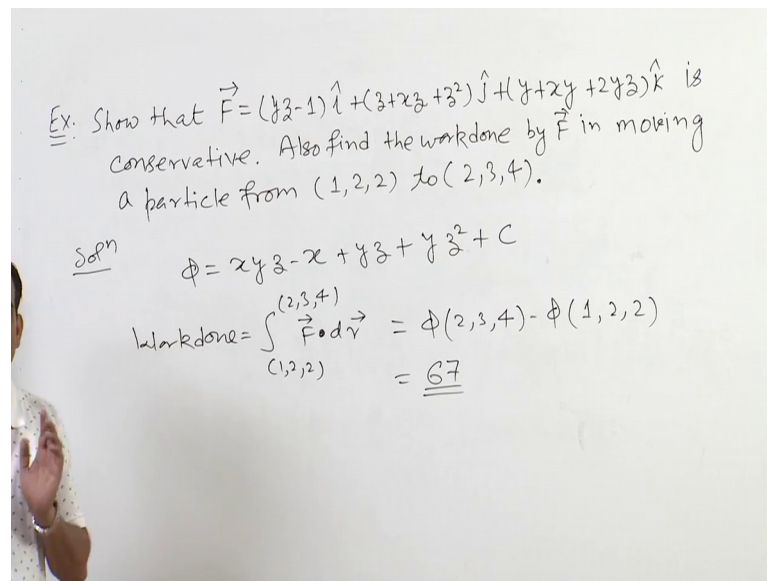 Ex: Show that F⃗ = (yz-1) î + (z+xz+z²) ĵ + (y+xy+2yz) k̂ is
conservative. Also find the workdone by F⃗ in moving
a particle from (1,2,2) to (2,3,4).
Solⁿ
Φ = xyz - x + yz + yz² + C
Workdone = ∫_(1,2,2)^(2,3,4) F⃗·dr⃗ = Φ(2,3,4) - Φ(1,2,2)
= 67